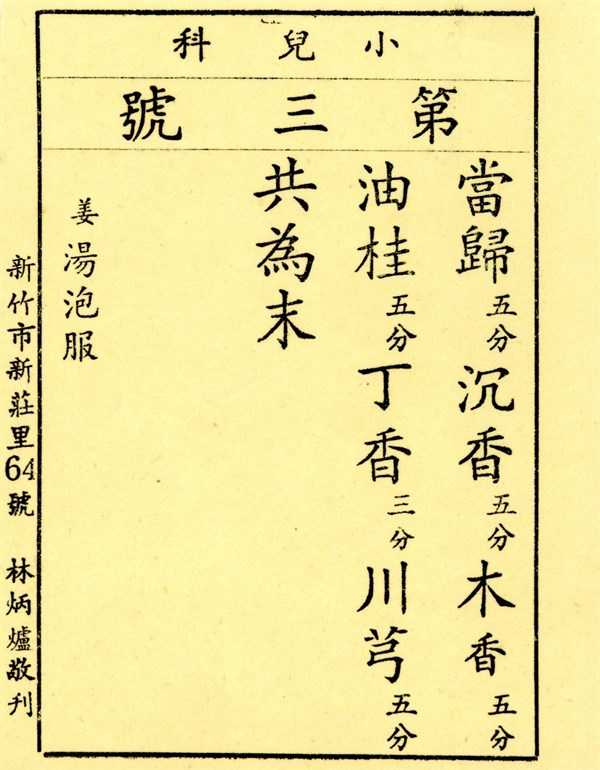 小兒科
第三號
當歸五分沉香五分木香五分
油桂五分丁香三分川芎五分
共為末
姜湯泡服
新竹市新莊里64號 林炳爐敬刊